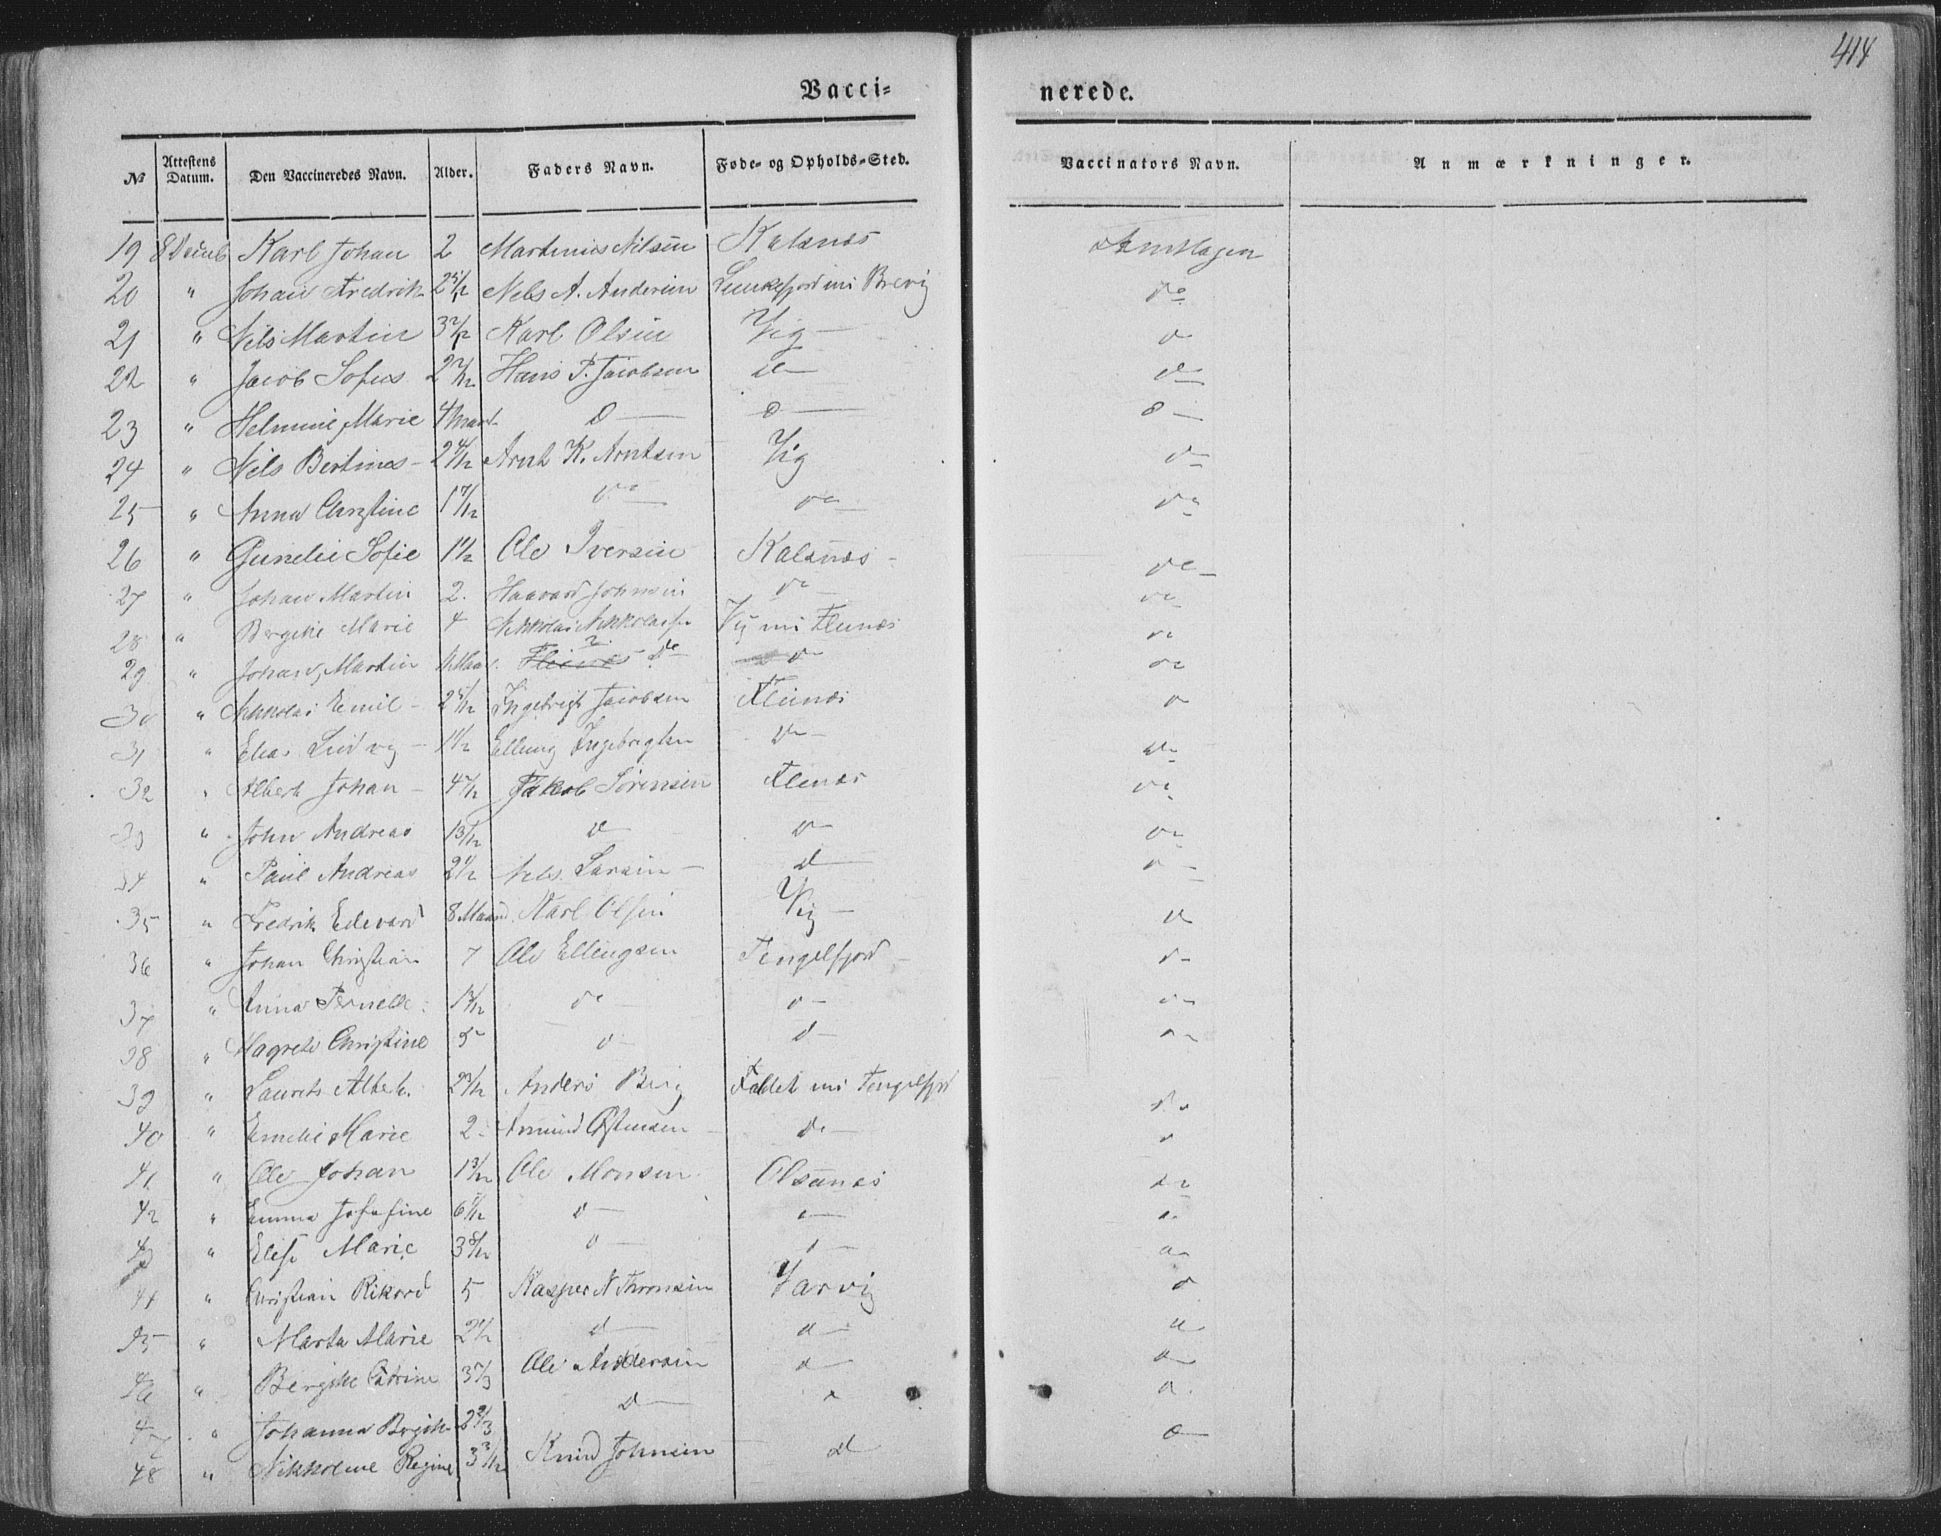 414
Vacci= nerede.
№ Attestens Datum. Den Vaccineredes Navn. Alder. Faders Navn. Føde- og Opholds-Sted. Vaccinators Navn. Anmærkninger.
19 8 Karl Johan 2 Martinus Nilsen Kalsnæs
20 " Johan Fredrik Nels A. Andersen Brevig do
21 " Nils Martin Karl Olsen Vig — d
22 " Jacob Sofus 2 7/12 Hans P. Jacobsen do do
23 " Helmine Marie d — d — d —
24 " Nils Bertinus - 2 4/12 Arnt K. Arntsen Vig do
25 " Anna Christine 1 7/12 do do do
26 " Gunelie Sofie 1 1/2 Ole Iversen Kalsnæs - do
27 " Johan Martin 2. Haavard Johnsen do do
28 " Bergithe Marie 4 do
29 " Johan Martin do do do
30 " Nikkolai Emil - 2 5/12 Ingebrigt Jacobsen Flenæs d
31 " Elias Ludvig - 1 1/2 Elling Ingebrigtsen do do
32 " Albert Johan - 4 7/12 Jakob Sørensen Flenæs do
33 " John Andreas d d do
34 " Paul Andreas 2 1/2 Nels Larsen - d d
35 " Fredrik Edevard 8 Maaned Karl Olsen Vig — d
36 " Johan Christian 7 Ole Ellingsen Tengelfjord d
37 " Anna Pernelle do d d
38 " Magrete Christine 5 d d d
39 " Laurits Albert. Anders Berg Faldet Tengelfjord do
40 " Emelie Marie 2 Amund Østensen do d
41 " Ole Johan 1 3/12 Ole Monsen Olsanæs do
42 " Emma Josefine d d
43 " Elise Marie 3 8/12 d d d
44 " Christian Rikard 5 Kasper N Thronsen Varvig d
45 " Marta Marie 2 1/2 d d d
46 " Bergithe Catrine Ole Andersen d d
47 " Johanna d d d
48 " Nikkoline Regine 3 3/12 Knud Johnsen d d